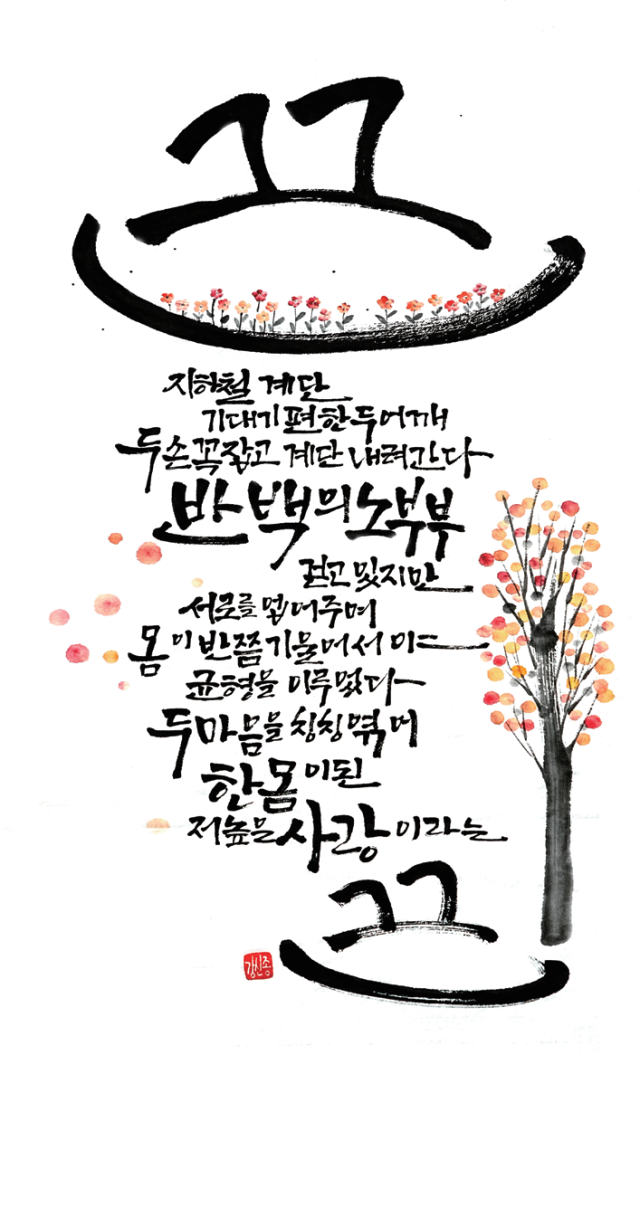 끈
지하철 계단
기대기 편한 두 어깨
두 손 꼭 잡고 계단 내려간다
반백의 노부부
걷고 있지만
서로를 업어주며
몸이 반쯤 기울어서
균형을 이루었다
두 마음을 칭칭 엮어
한 몸이 된
저 높은 사랑이라는
끈